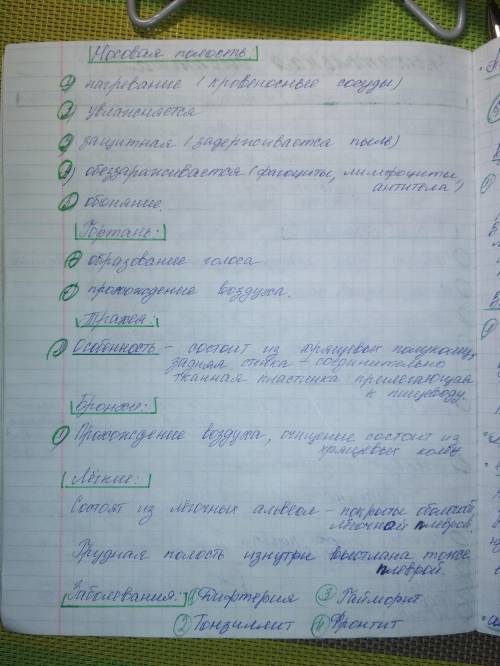 Носовая полость:
нагревание (кровеносные сосуды)
увлажняется
защитная (задерживается пыль)
обеззараживается (фагоциты, лимфоциты
антитела)
обоняние.
Гортань:
образование голоса
прохождение воздуха.
Трахея:
Особенность - состоит из хрящевых полуколец,
задняя стенка - соединительно
тканная пластинка прилегающая
к пищеводу.
Бронхи:
Прохождение воздуха, очищение состоит из
хрящевых колец.
Лёгкие:
Состоят из лёгочных альвеол - покрыты оболочкой
лёгочной плеврой.
Грудная полость изнутри выстлана тоже
плеврой.
Заболевания: 1 Дифтерия 3 Гайморит
2 Тонзиллит 4 Фронтит